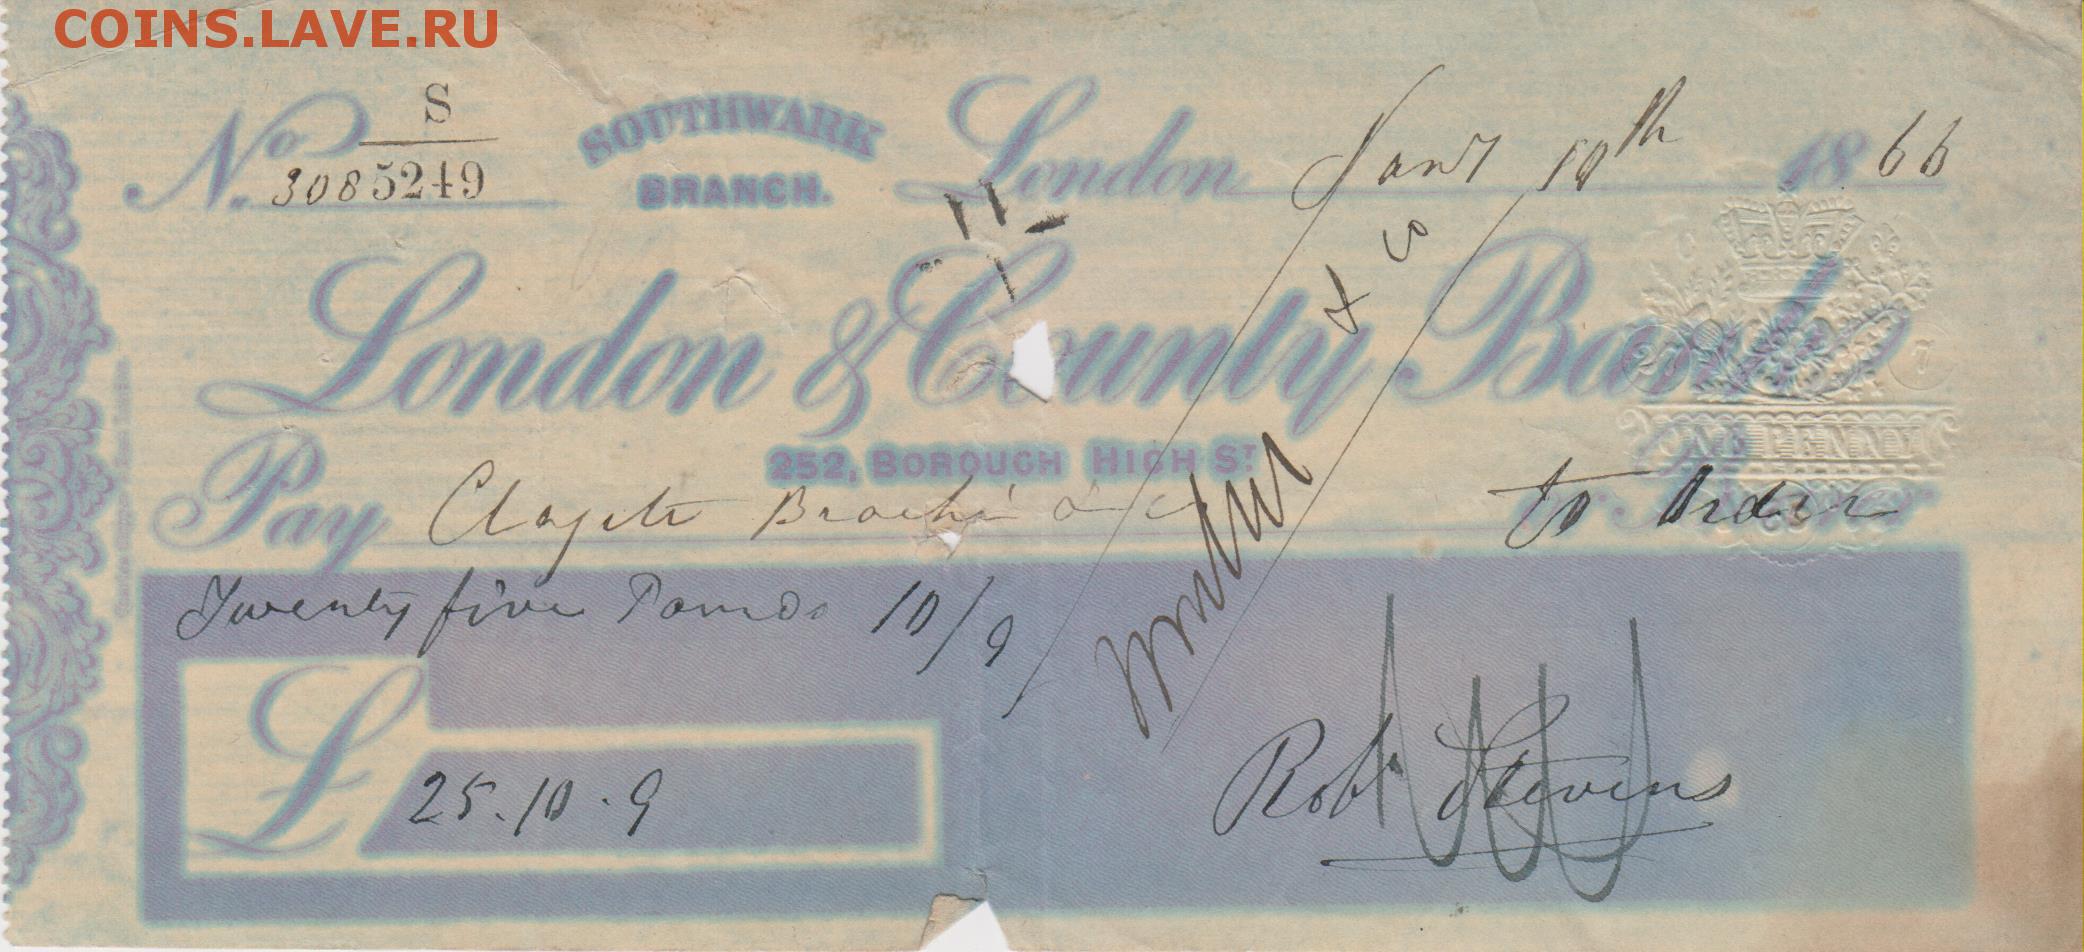 COINS.LAVE.RU
No. S 3085249
SOUTHWARK BRANCH.
London Jany 10th 1866
London & County Bank
252, BOROUGH HIGH ST.
ONE PENNY
Pay to Order
Twenty five Pounds 10/9
£ 25.10.9
Robt Stevens